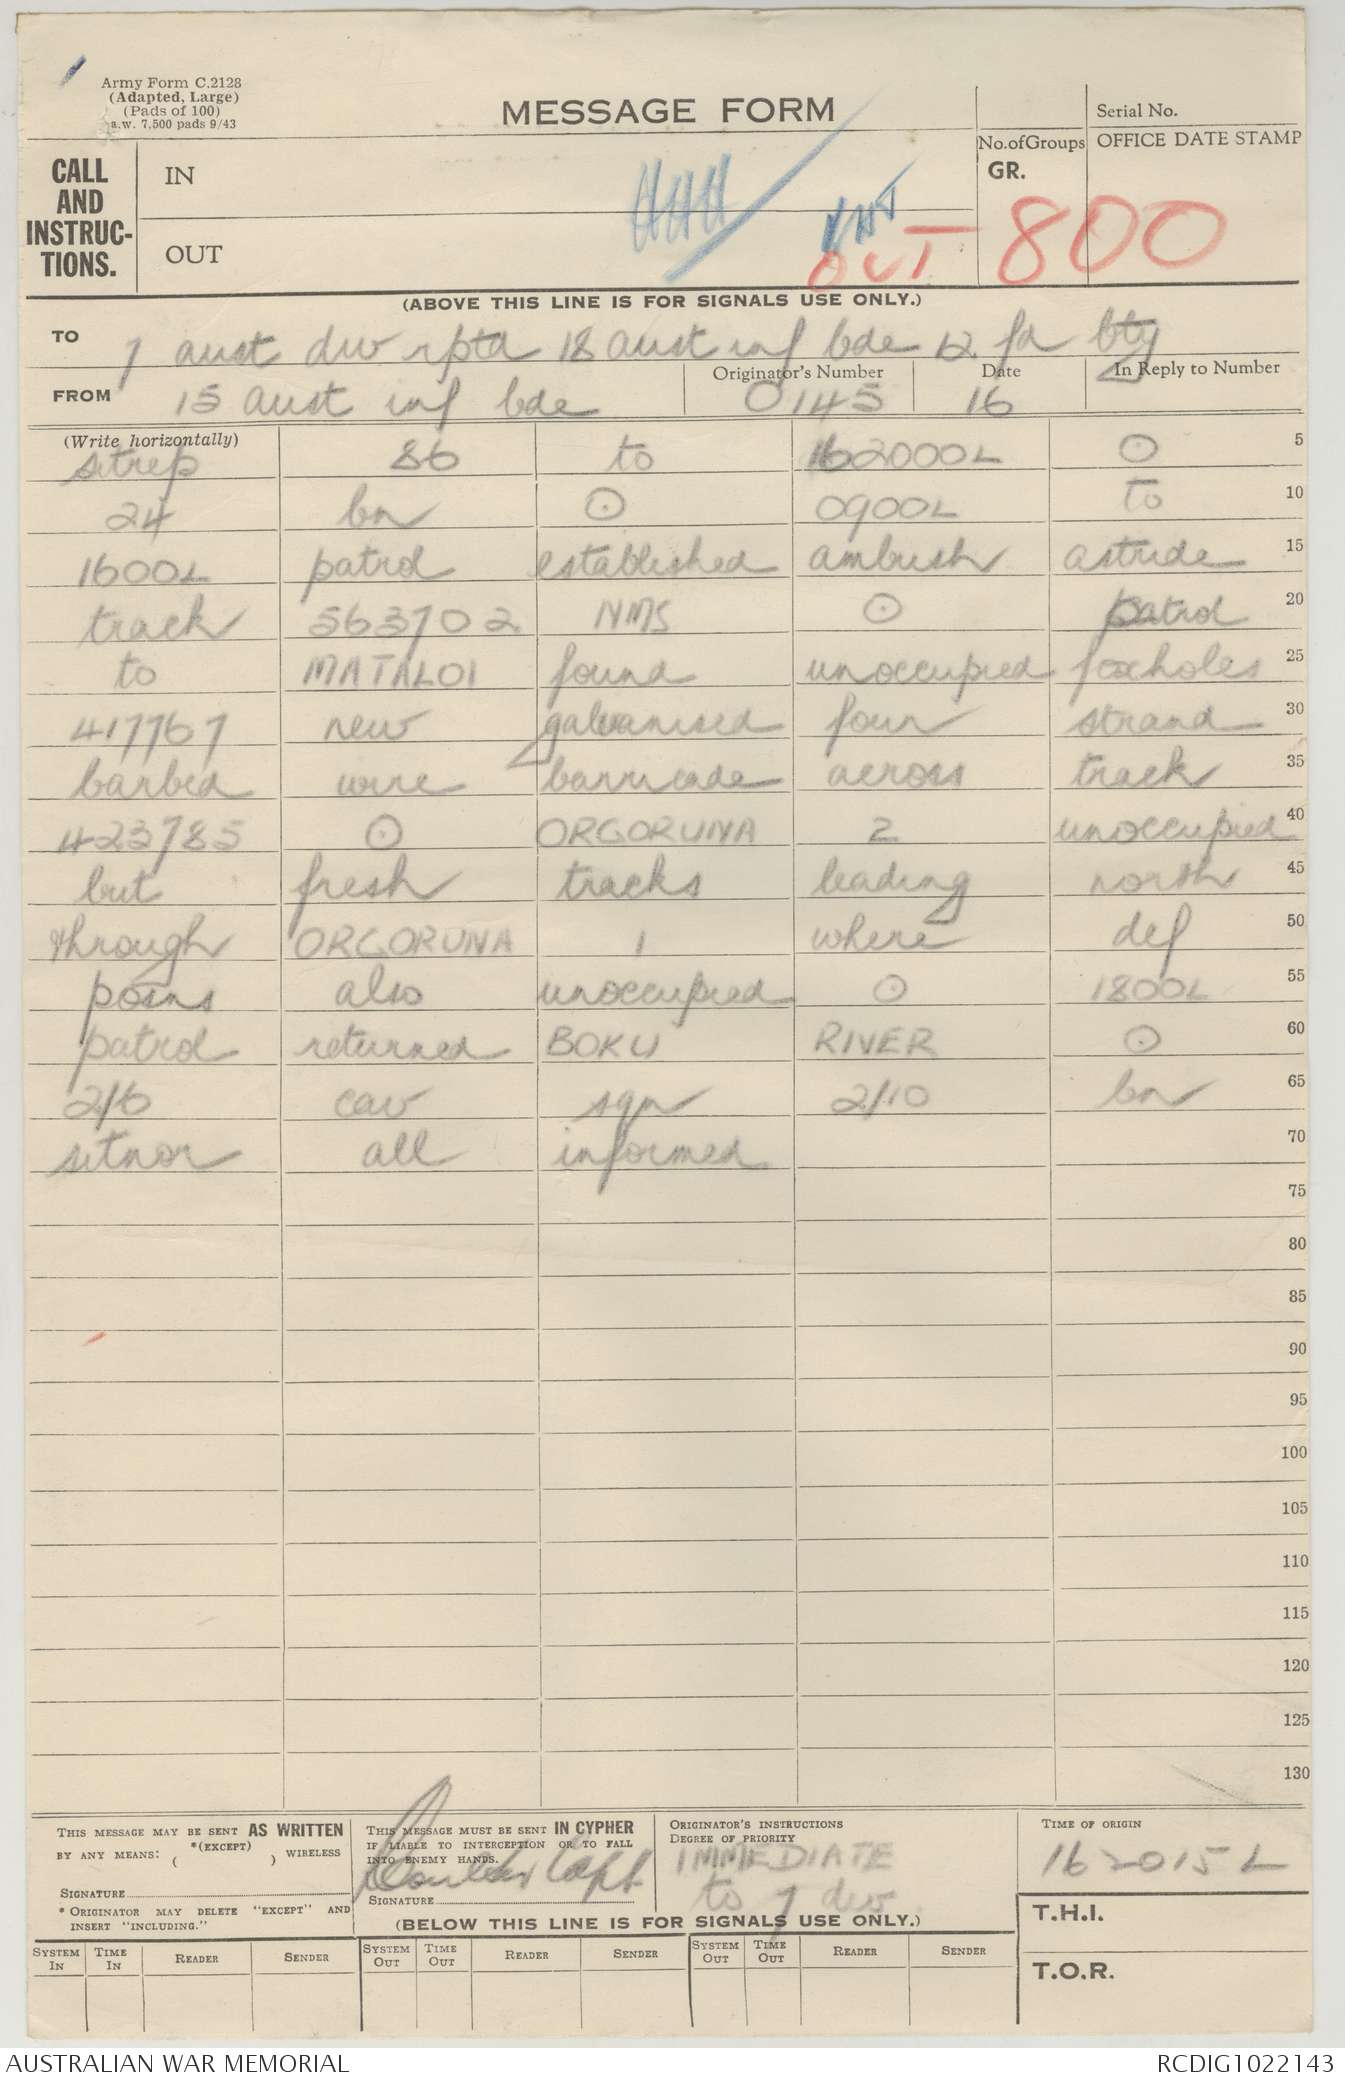 Army Form C.2128
(Adapted, Large)
(Pads of 100)
a.w. 7,500 pads 9/43
MESSAGE FORM
Serial No.
No. of Groups
GR.
OFFICE DATE STAMP
CALL AND INSTRUC-TIONS.
IN
OUT
OUT 800
(ABOVE THIS LINE IS FOR SIGNALS USE ONLY.)
TO 7 aust div rptd 18 aust inf bde 12 fd bty
Originator's Number Date In Reply to Number
FROM 15 aust inf bde 0145 16
(Write horizontally)
sitrep 86 to 162000L ⊙ 5
24 bn ⊙ 0900L to 10
1600L patrol established ambush astride 15
track 563702 NMS ⊙ patrol 20
to MATALOI found unoccupied foxholes 25
417767 new galvanised four strand 30
barbed wire barricade across track 35
423785 ⊙ ORGORUNA 2 unoccupied 40
but fresh tracks leading north 45
through ORGORUNA 1 where def 50
posns also unoccupied ⊙ 1800L 55
patrol returned BOKU RIVER ⊙ 60
2/6 cav sqn 2/10 bn 65
sitnor all informed 70
75
80
85
90
95
100
105
110
115
120
125
130
THIS MESSAGE MAY BE SENT AS WRITTEN
BY ANY MEANS: *(EXCEPT) ( ) WIRELESS
SIGNATURE
* ORIGINATOR MAY DELETE "EXCEPT" AND
INSERT "INCLUDING."
THIS MESSAGE MUST BE SENT IN CYPHER
IF LIABLE TO INTERCEPTION OR TO FALL
INTO ENEMY HANDS.
Capt
SIGNATURE
ORIGINATOR'S INSTRUCTIONS
DEGREE OF PRIORITY
IMMEDIATE
to 7 div
TIME OF ORIGIN
162015L
T.H.I.
T.O.R.
(BELOW THIS LINE IS FOR SIGNALS USE ONLY.)
SYSTEM IN TIME IN READER SENDER SYSTEM OUT TIME OUT READER SENDER SYSTEM OUT TIME OUT READER SENDER
AUSTRALIAN WAR MEMORIAL RCDIG1022143